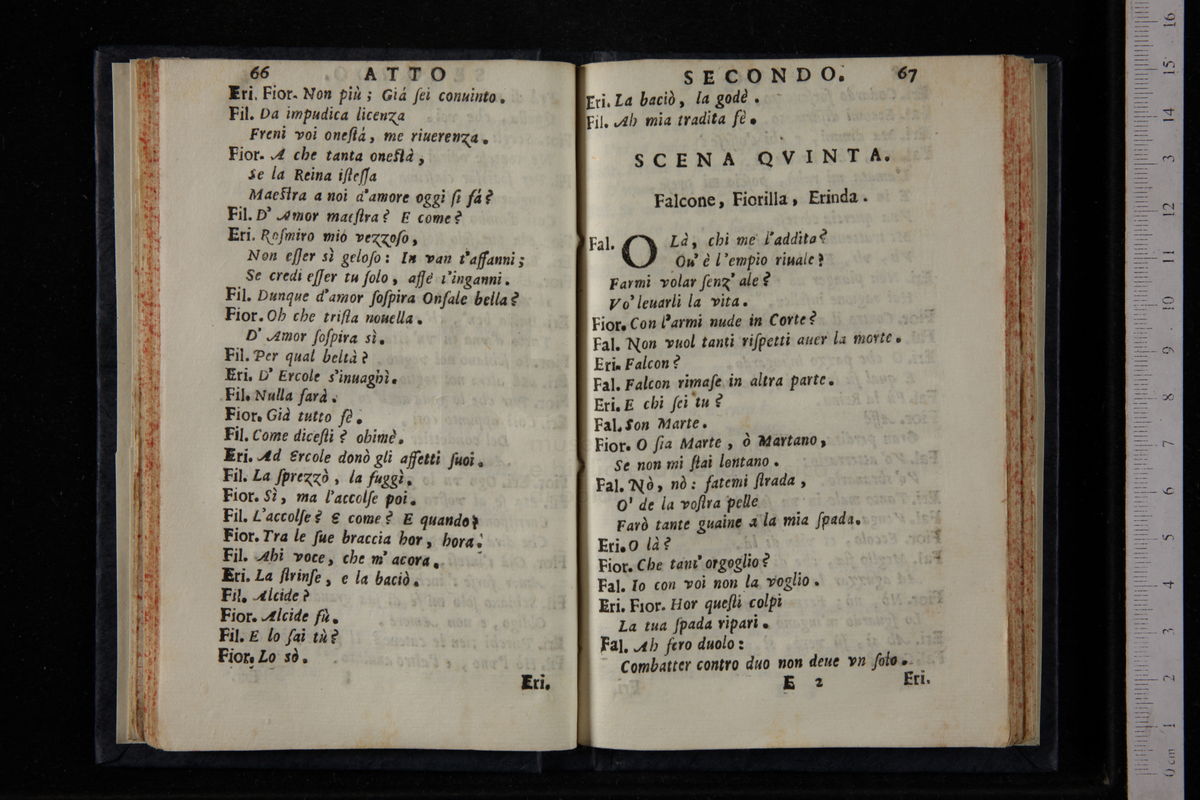 66 ATTO
Eri. Fior. Non più ; Giá ſei conuinto.
Fil. Da impudica licenza
Freni voi oneſtá, me riuerenza.
Fior. A che tanta oneſtà,
Se la Reina iſteſſa
Maeſtra a noi d'amore oggi ſi fá?
Fil. D' Amor maeſtra? E come?
Eri. Roſmiro miò vezzoſo,
Non eſſer sì geloſo: In van t'affanni;
Se credi eſſer tu ſolo, affé t'inganni.
Fil. Dunque d'amor ſoſpira Onfale bella?
Fior. Oh che triſta nouella.
D' Amor ſoſpira sì.
Fil. Per qual beltà?
Eri. D' Ercole s'inuaghì.
Fil. Nulla farà.
Fior. Già tutto fè.
Fil. Come diceſti? ohimè.
Eri. Ad Ercole donò gli affetti ſuoi.
Fil. La ſprezzò, la fuggì.
Fior. Sì, ma l'accolſe poi.
Fil. L'accolſe? E come? E quando?
Fior. Tra le ſue braccia hor, hora.
Fil. Ahi voce, che m' acora.
Eri. La ſtrinſe, e la baciò.
Fil. Alcide?
Fior. Alcide fù.
Fil. E lo ſai tù?
Fior. Lo sò.
Eri.
SECONDO. 67
Eri. La baciò, la godè.
Fil. Ah mia tradita fè.
SCENA QVINTA.
Falcone, Fiorilla, Erinda.
Fal. OLà, chi me l'addita?
Ou' è l'empio riuale?
Farmi volar ſenz' ale?
Vo' leuarli la vita.
Fior. Con l'armi nude in Corte?
Fal. Non vuol tanti riſpetti auer la morte.
Eri. Falcon?
Fal. Falcon rimaſe in altra parte.
Eri. E chi ſei tu?
Fal. Son Marte.
Fior. O ſia Marte, ò Martano,
Se non mi ſtai lontano.
Fal. Nò, nò: fatemi ſtrada,
O' de la voſtra pelle
Farò tante guaine a la mia ſpada.
Eri. O là?
Fior. Che tant' orgoglio?
Fal. Io con voi non la voglio.
Eri. Fior. Hor queſti colpi
La tua ſpada ripari.
Fal. Ah fero duolo:
Combatter contro duo non deue vn ſolo.
E 2 Eri.
0 cm 1 2 3 4 5 6 7 8 9 10 11 12 3 14 15 16